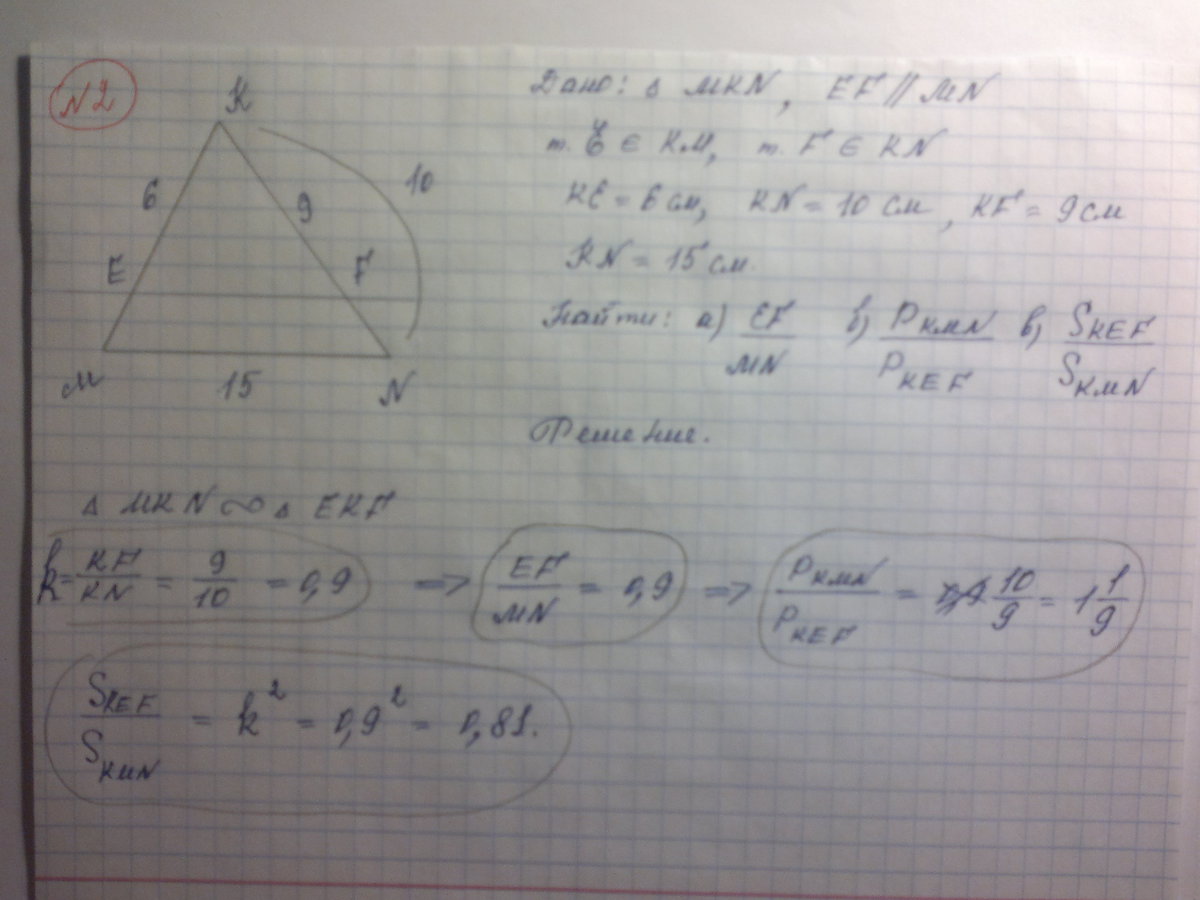 N2
Дано: Δ MKN, EF // MN
т. E ∈ KM, т. F ∈ KN
KE = 6 см, KN = 10 см, KF = 9 см
KN = 15 см.
Найти: а) EF/MN б) P_KMN/P_KEF в) S_KEF/S_KMN
Решение.
K
6
9
10
E
F
M
15
N
Δ MKN ∾ Δ EKF
k = KF/KN = 9/10 = 0,9 => EF/MN = 0,9 => P_KMN/P_KEF = 10/9 = 1 1/9
S_KEF/S_KMN = k² = 0,9² = 0,81.